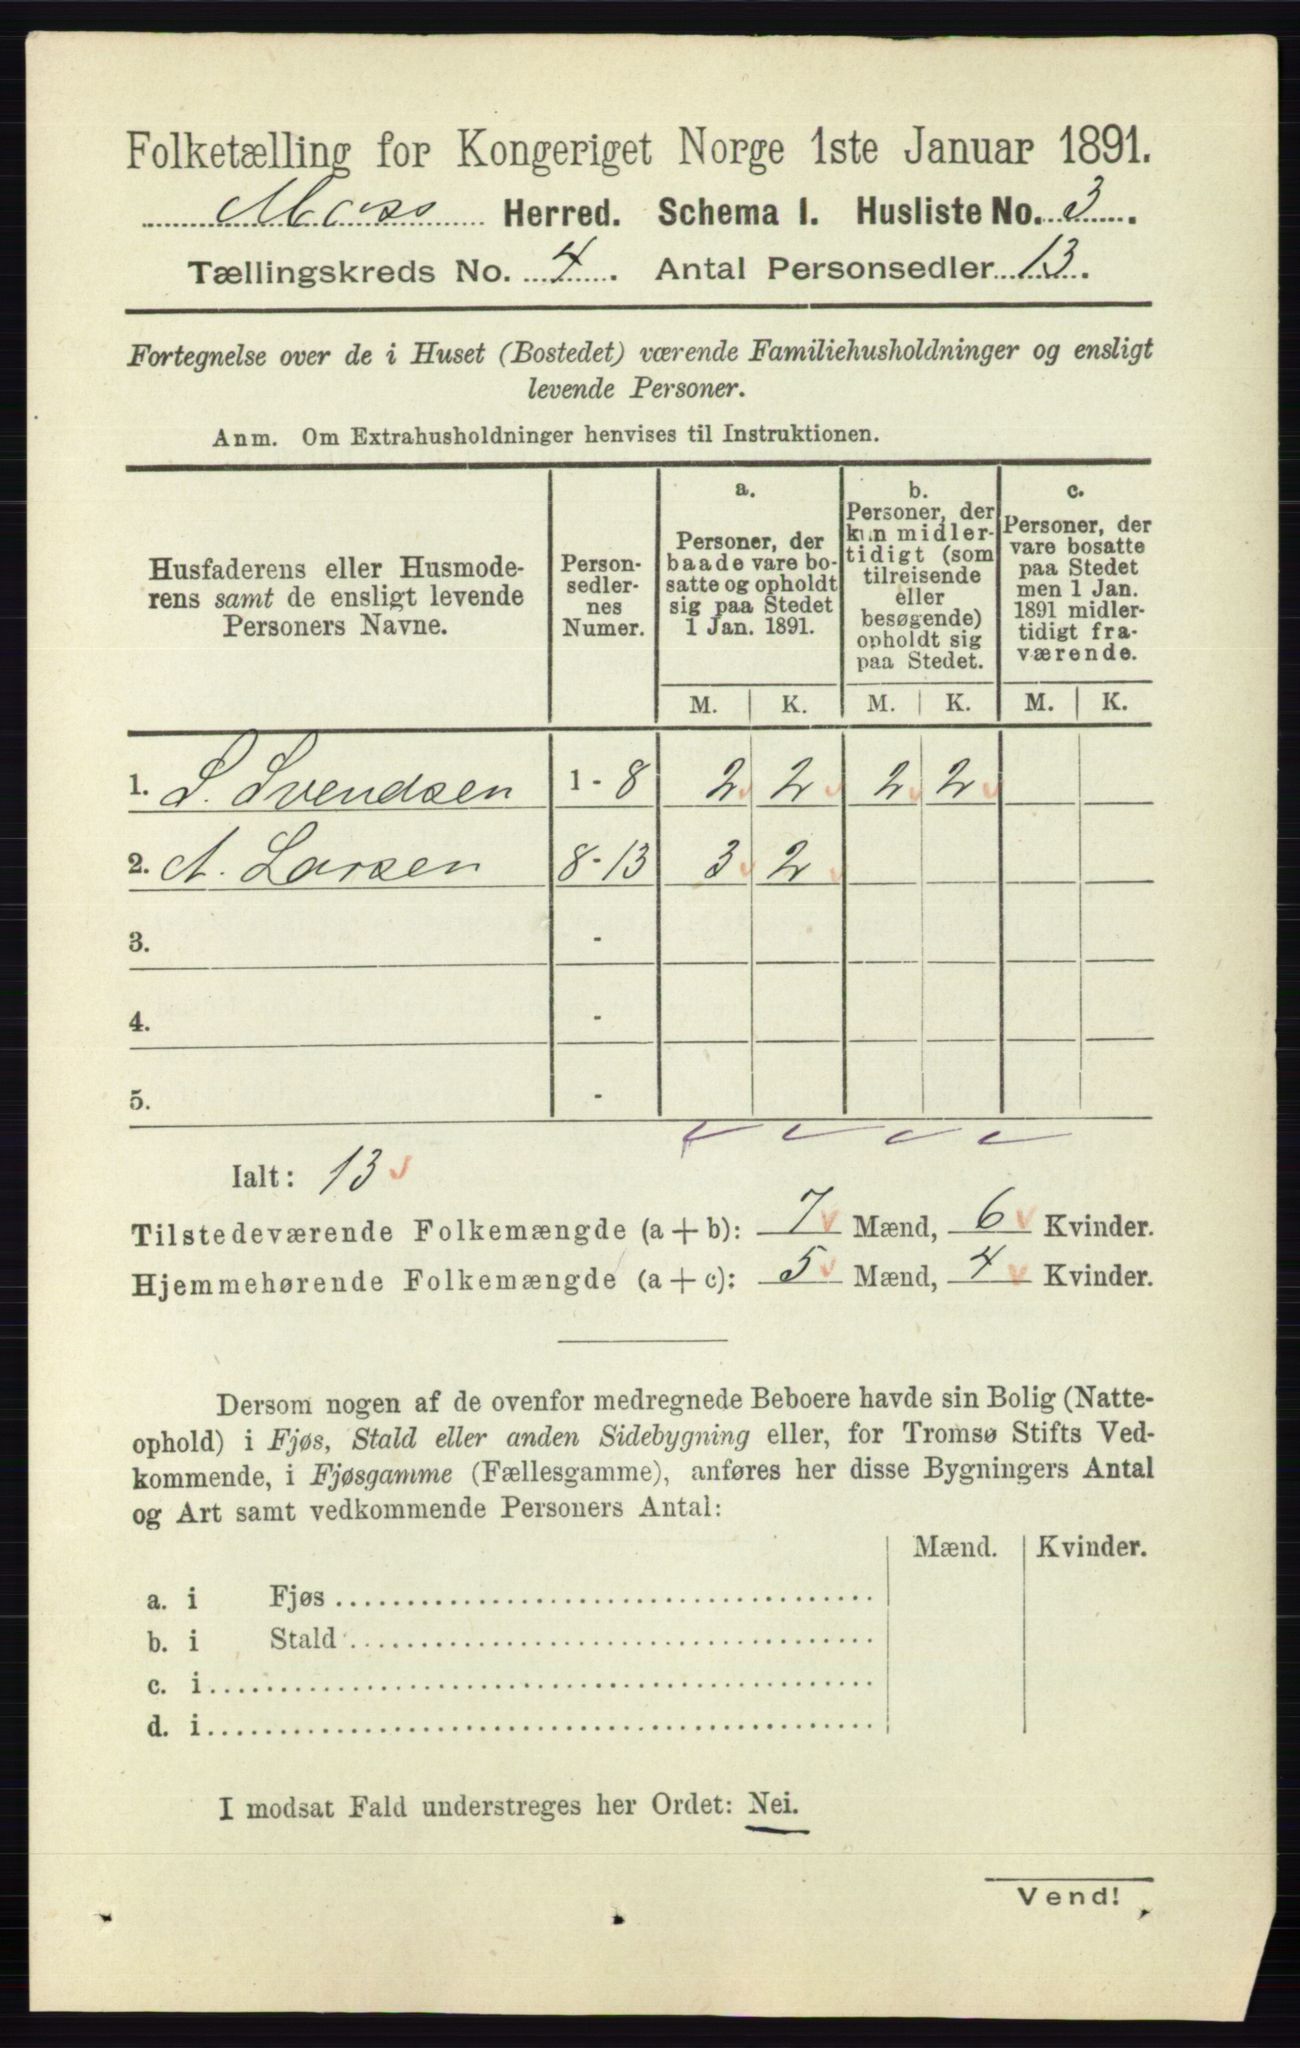 Folketælling for Kongeriget Norge 1ste Januar 1891.
Moss Herred. Schema I. Husliste No. 3.
Tællingskreds No. 4. Antal Personsedler 13.
Fortegnelse over de i Huset (Bostedet) værende Familiehusholdninger og ensligt
levende Personer.
Anm. Om Extrahusholdninger henvises til Instruktionen.
Husfaderens eller Husmode-
rens samt de ensligt levende
Personers Navne.
Person-
sedler-
nes
Numer.
a.
Personer, der
baade vare bo-
satte og opholdt
sig paa Stedet
1 Jan. 1891.
b.
Personer, der
kun midler-
tidigt (som
tilreisende
eller
besøgende)
opholdt sig
paa Stedet.
c.
Personer, der
vare bosatte
paa Stedet
men 1 Jan.
1891 midler-
tidigt fra-
værende.
M. K. M. K. M. K.
1. S. Svendsen 1 - 8 2 2 2 2
2. A. Larsen 8 - 13 3 2
3. -
4. -
5. -
Ialt: 13
Tilstedeværende Folkemængde (a + b): 7 Mænd, 6 Kvinder.
Hjemmehørende Folkemængde (a + c): 5 Mænd, 4 Kvinder.
Dersom nogen af de ovenfor medregnede Beboere havde sin Bolig (Natte-
ophold) i Fjøs, Stald eller anden Sidebygning eller, for Tromsø Stifts Ved-
kommende, i Fjøsgamme (Fællesgamme), anføres her disse Bygningers Antal
og Art samt vedkommende Personers Antal:
Mænd. Kvinder.
a. i Fjøs
b. i Stald
c. i
d. i
I modsat Fald understreges her Ordet: Nei.
Vend!